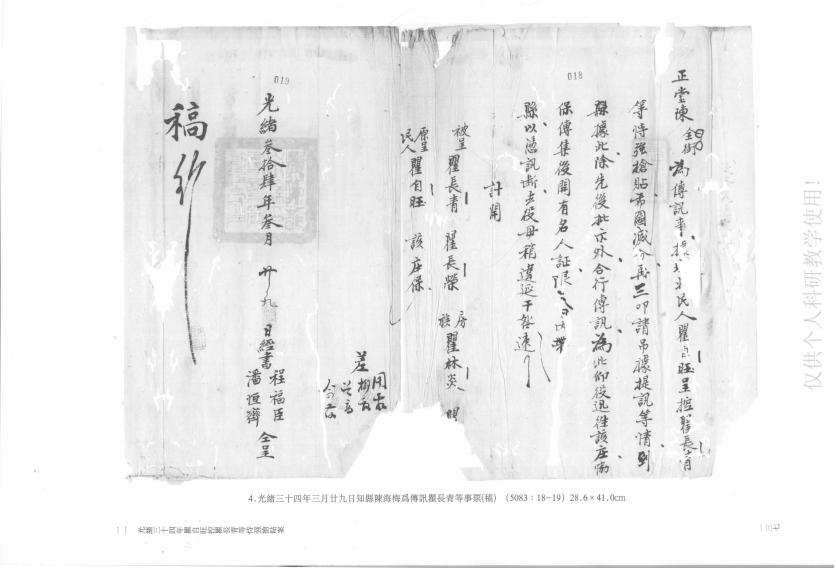 018
正堂陳 銜 為傳訊事據 民人瞿自旺呈控瞿長青
等恃强搶貼希圖滅 再三叩請吊據提訊等情到
縣據此除先後批示外合行傳訊為此仰役迅往該庄協
保傳集後開有名人証限 日內帶
縣以憑訊斷去役毋稍違延干咎速
計開
被呈 瞿長青 瞿長榮 房族 瞿林炎
原呈民人 瞿自旺 該庄保
差
019
光緒叁拾肆年叁月 廿九 日經書 程福臣 潘恒齊 仝呈
稿 行
4.光緒三十四年三月廿九日知縣陳海梅爲傳訊瞿長青等事票(稿) (5083：18-19) 28.6×41.0cm
一一 光緒三十四年瞿自旺控瞿長青等恃强搶貼案
一三七
仅供个人科研教学使用！